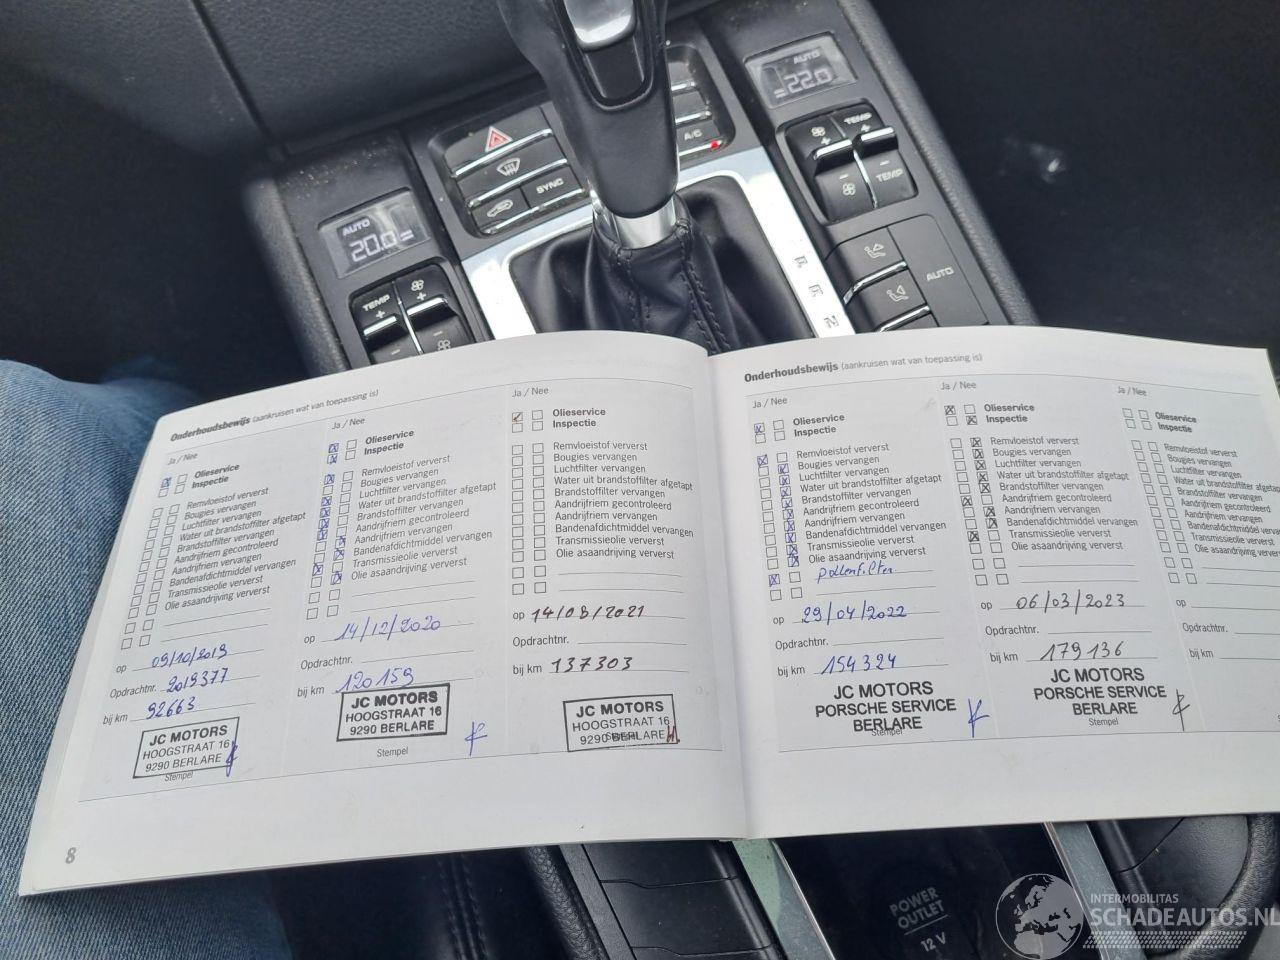 AUTO
22.0
AUTO
20.0
SYNC
A/C
TEMP
TEMP
TEMP
AUTO
R
N
Onderhoudsbewijs (aankruisen wat van toepassing is)
Ja / Nee
Olieservice
Inspectie
Remvloeistof ververst
Bougies vervangen
Luchtfilter vervangen
Water uit brandstoffilter afgetapt
Brandstoffilter vervangen
Aandrijfriem gecontroleerd
Aandrijfriem vervangen
Bandenafdichtmiddel vervangen
Transmissieolie ververst
Olie asaandrijving ververst
op 09/10/2019
Opdrachtnr. 2019377
bij km 92663
JC MOTORS
HOOGSTRAAT 16
9290 BERLARE
Stempel
Ja / Nee
Olieservice
Inspectie
Remvloeistof ververst
Bougies vervangen
Luchtfilter vervangen
Water uit brandstoffilter afgetapt
Brandstoffilter vervangen
Aandrijfriem gecontroleerd
Aandrijfriem vervangen
Bandenafdichtmiddel vervangen
Transmissieolie ververst
Olie asaandrijving ververst
op 14/12/2020
Opdrachtnr.
bij km 120159
JC MOTORS
HOOGSTRAAT 16
9290 BERLARE
Stempel
Ja / Nee
Olieservice
Inspectie
Remvloeistof ververst
Bougies vervangen
Luchtfilter vervangen
Water uit brandstoffilter afgetapt
Brandstoffilter vervangen
Aandrijfriem gecontroleerd
Aandrijfriem vervangen
Bandenafdichtmiddel vervangen
Transmissieolie ververst
Olie asaandrijving ververst
op 14/08/2021
Opdrachtnr.
bij km 137303
JC MOTORS
HOOGSTRAAT 16
9290 BERLARE
Stempel
8
Onderhoudsbewijs (aankruisen wat van toepassing is)
Ja / Nee
Olieservice
Inspectie
Remvloeistof ververst
Bougies vervangen
Luchtfilter vervangen
Water uit brandstoffilter afgetapt
Brandstoffilter vervangen
Aandrijfriem gecontroleerd
Aandrijfriem vervangen
Bandenafdichtmiddel vervangen
Transmissieolie ververst
Olie asaandrijving ververst
pollenfilter
op 29/04/2022
Opdrachtnr.
bij km 154324
JC MOTORS
PORSCHE SERVICE
BERLARE
Stempel
Ja / Nee
Olieservice
Inspectie
Remvloeistof ververst
Bougies vervangen
Luchtfilter vervangen
Water uit brandstoffilter afgetapt
Brandstoffilter vervangen
Aandrijfriem gecontroleerd
Aandrijfriem vervangen
Bandenafdichtmiddel vervangen
Transmissieolie ververst
Olie asaandrijving ververst
op 06/03/2023
Opdrachtnr.
bij km 179136
JC MOTORS
PORSCHE SERVICE
BERLARE
Stempel
Ja / Nee
Olieservice
Inspectie
Remvloeistof ververst
Bougies vervangen
Luchtfilter vervangen
Water uit brandstoffilter
Brandstoffilter vervangen
Aandrijfriem gecontroleerd
Aandrijfriem vervangen
Bandenafdichtmiddel
Transmissieolie ververst
Olie asaandrijving ververst
op
Opdrachtnr.
bij km
POWER
OUTLET
12 V
INTERMOBILITAS
SCHADEAUTOS.NL